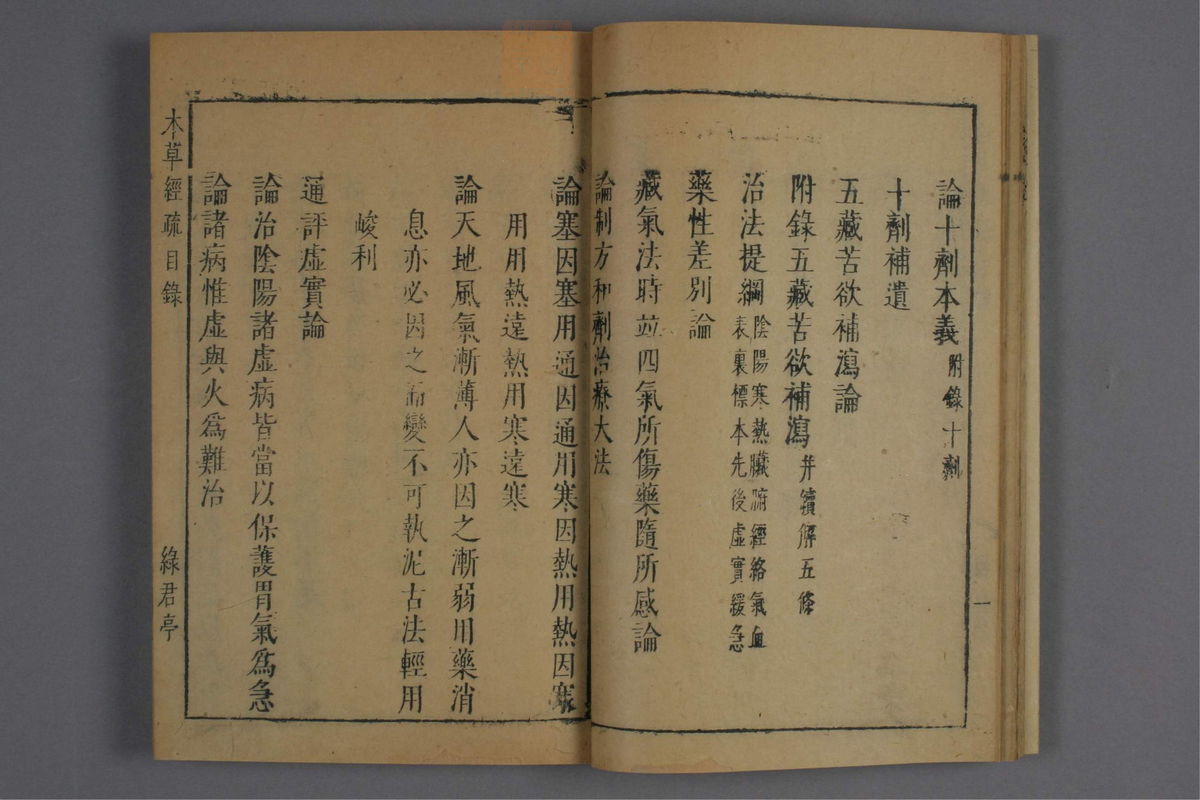 論十劑本義附錄十劑
十劑補遺
五藏苦欲補瀉論
附錄五藏苦欲補瀉并續解五條
治法提綱陰陽寒熱臟腑經絡氣血
表裏標本先後虛實緩急
藥性差別論
藏氣法時並四氣所傷藥隨所感論
論制方和劑治療大法
論塞因塞用通因通用寒因熱用熱因寒
用用熱遠熱用寒遠寒
論天地風氣漸薄人亦因之漸弱用藥消
息亦必因之而變不可執泥古法輕用
峻利
通評虛實論
論治陰陽諸虛病皆當以保護胃氣爲急
論諸病惟虛與火爲難治
本草經疏目錄
綠君亭
一